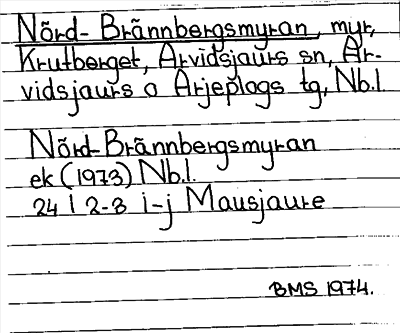 Nõrd-Brãnnbergsmyran, myr,
Krutberget, Arvidsjaurs sn, Ar-
vidsjaurs o Arjeplogs tg, Nb.l
Nõrd-Brãnnbergsmyran
ek (1973) Nb.l.
24 I 2-3 i-j Mausjaure
BMS 1974.